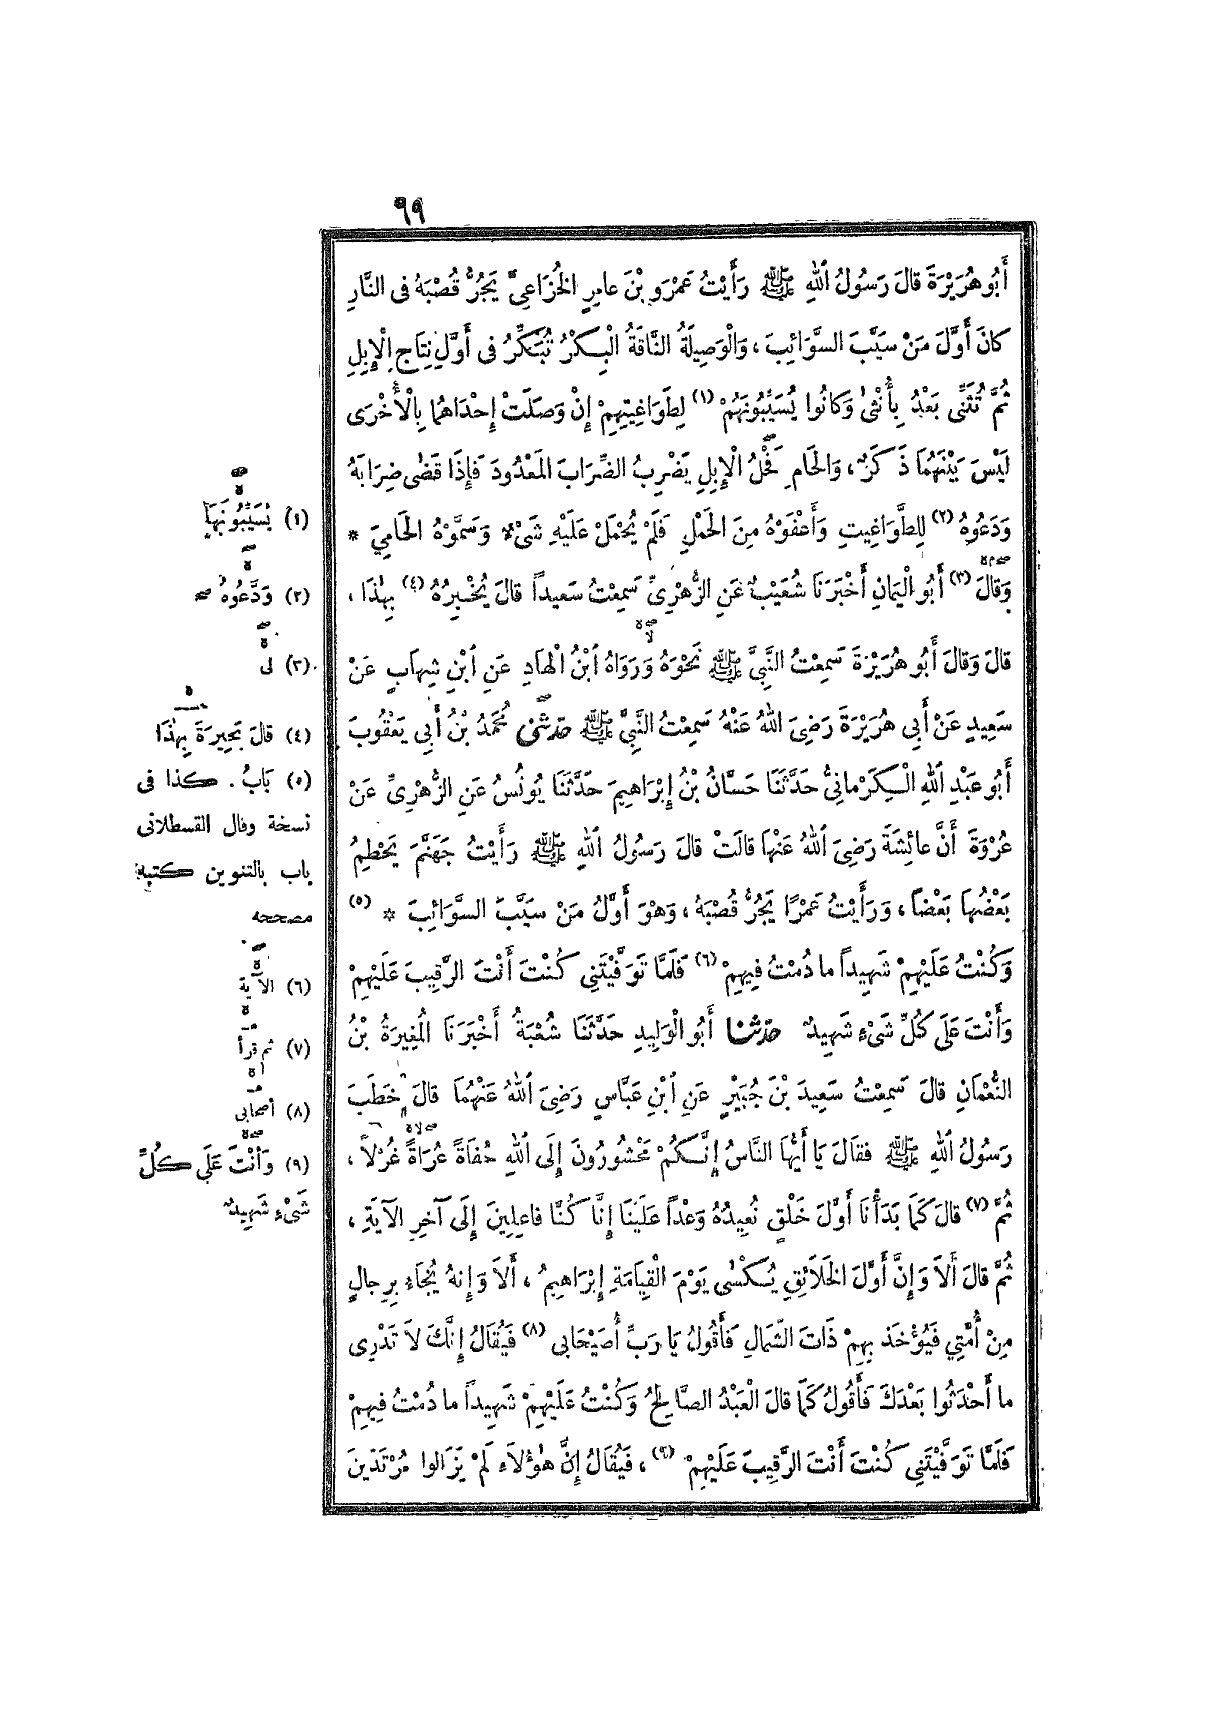 ٩٩
أَبُو هُرَيْرَةَ قالَ رَسُولُ اللهِ ﷺ رَأَيْتُ عَمْرَو بْنَ عامِرٍ الخُزَاعِيَّ يَجُرُّ قُصْبَهُ فى النَّارِ
كانَ أَوَّلَ مَنْ سَيَّبَ السَّوَائِبَ ، وَالْوَصِيلَةُ النَّاقَةُ الْبِكْرُ تُبَكِّرُ فى أَوَّلِ نِتَاجِ الْإِبِلِ
ثُمَّ تُثَنِّى بَعْدُ بِأُنْثىٰ وَكانُوا يُسَيِّبُونَهُمْ (١) لِطَوَاغِيتِهِمْ إِنْ وَصَلَتْ إِحْدَاهُمَا بِالْأُخْرَى
لَيْسَ بَيْنَهُمَا ذَكَرٌ ، وَالحَامِ فَحْلُ الْإِبِلِ يَضْرِبُ الضِّرَابَ المَعْدُودَ فَإِذَا قَضٰى ضِرَابَهُ
وَدَعُوهُ (٢) لِلطَّوَاغِيتِ وَأَعْفَوْهُ مِنَ الحَمْلِ فَلَمْ يُحْمَلْ عَلَيْهِ شَىْءٌ وَسَمَّوْهُ الحَامِيَ *
وَقالَ (٣) أَبُو الْيَمانِ أَخْبَرَنَا شُعَيْبٌ عَنِ الزُّهْرِىِّ سَمِعْتُ سَعِيداً قالَ يُخْبِرُهُ (٤) بِهٰذَا ،
قالَ وَقالَ أَبُو هُرَيْرَةَ سَمِعْتُ النَّبِيَّ ﷺ نَحْوَهُ وَرَوَاهُ ابْنُ الْهَادِ عَنِ ابْنِ شِهَابٍ عَنْ
سَعِيدٍ عَنْ أَبِى هُرَيْرَةَ رَضِيَ اللهُ عَنْهُ سَمِعْتُ النَّبِيَّ ﷺ حَدَّثَنِى مُحَمَّدُ بْنُ أَبِى يَعْقُوبَ
أَبُو عَبْدِ اللهِ الْكَرْمانِيُّ حَدَّثَنَا حَسَّانُ بْنُ إِبْرَاهِيمَ حَدَّثَنَا يُونُسُ عَنِ الزُّهْرِىِّ عَنْ
عُرْوَةَ أَنَّ عائِشَةَ رَضِيَ اللهُ عَنْهَا قالَتْ قالَ رَسُولُ اللهِ ﷺ رَأَيْتُ جَهَنَّمَ يَحْطِمُ
بَعْضُهَا بَعْضاً ، وَرَأَيْتُ عَمْرًا يَجُرُّ قُصْبَهُ ، وَهْوَ أَوَّلُ مَنْ سَيَّبَ السَّوَائِبَ * (٥)
وَكُنْتُ عَلَيْهِمْ شَهِيداً ما دُمْتُ فِيهِمْ (٦) فَلَمَّا تَوَفَّيْتَنِى كُنْتَ أَنْتَ الرَّقِيبَ عَلَيْهِمْ
وَأَنْتَ عَلَى كُلِّ شَىْءٍ شَهِيدٌ حَدَّثَنَا أَبُو الْوَلِيدِ حَدَّثَنَا شُعْبَةُ أَخْبَرَنَا الْمُغِيرَةُ بْنُ
النُّعْمَانِ قالَ سَمِعْتُ سَعِيدَ بْنَ جُبَيْرٍ عَنِ ابْنِ عَبَّاسٍ رَضِىَ اللهُ عَنْهُمَا قالَ خَطَبَ
رَسُولُ اللهِ ﷺ فَقالَ يَا أَيُّهَا النَّاسُ إِنَّكُمْ مَحْشُورُونَ إِلَى اللهِ حُفَاةً عُرَاةً غُرْلاً ،
ثُمَّ (٧) قالَ كَمَا بَدَأْنَا أَوَّلَ خَلْقٍ نُعِيدُهُ وَعْداً عَلَيْنَا إِنَّا كُنَّا فاعِلِينَ إِلَى آخِرِ الآيَةِ ،
ثُمَّ قالَ أَلاَ وَإِنَّ أَوَّلَ الخَلاَئِقِ يُكْسٰى يَوْمَ الْقِيَامَةِ إِبْرَاهِيمُ ، أَلاَ وَإِنهُ يُجَاءُ بِرِجالٍ
مِنْ أُمَّتِي فَيُؤْخَذُ بِهِمْ ذَاتَ الشِّمَالِ فَأَقُولُ يَا رَبِّ أُصَيْحَابِى (٨) فَيُقَالُ إِنَّكَ لاَ تَدْرِى
ما أَحْدَثُوا بَعْدَكَ فَأَقُولُ كَمَا قالَ الْعَبْدُ الصَّالِحُ وَكُنْتُ عَلَيْهِمْ شَهِيداً ما دُمْتُ فِيهِمْ
فَلَمَّا تَوَفَّيْتَنِى كُنْتَ أَنْتَ الرَّقِيبَ عَلَيْهِمْ (٩) ، فَيُقَالُ إِنَّ هٰؤُلاَءِ لَمْ يَزَالُوا مُرْتَدِّينَ
(١) يُسَيِّبُونَهَا
(٢) وَدَّعُوهُ
(٣) لى
(٤) قالَ بَحِيرَةَ بِهٰذَا
(٥) بَابُ . كذا فى
نسخة وقال القسطلانى
باب بالتنوين كتبه
مصححه
(٦) الآية
(٧) ثم قرأ
(٨) أصحابى
(٩) وَأَنْتَ عَلَى كُلِّ
شَىْءٍ شَهِيدٌ